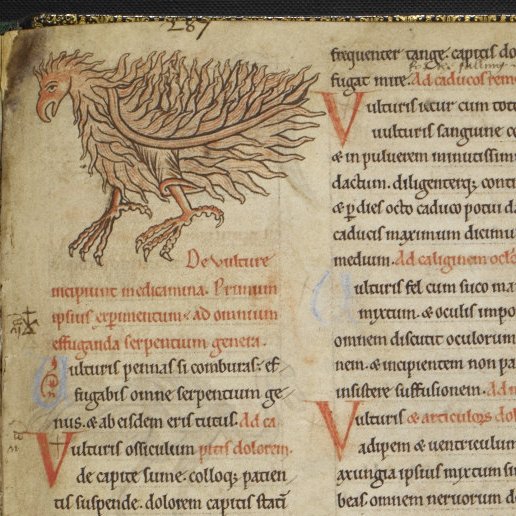 287
De vulture
incipiunt medicamina. Primum
ipsius experimentum: ad omnium
effuganda serpentium genera.
Vulturis pennas si comburas: ef-
fugabis omne serpentium ge-
nus. & ab eisdem eris tutus. Ad ca
Vulturis ossiculum pitis dolorem.
de capite sume. colloq; patien-
tis suspende. dolorem capitis statī
frequenter tange. capitis do
fugat mire. Ad caducos reme
Vulturis iecur cum toto
vulturis sanguine co
& in pulverem minutissim
dactum. diligenterq; conti
& p dies octo caduco potui da
caducis maximum dicimu
medium. Ad caliginem oclo
Vulturis fel cum suco ma
mixtum. & oculis impo
omnem discutit oculorum
nem. & incipientem non pa
insistere suffusionem. Ad n
Vulturis & articulos dol
adipem & ventriculum
axungia ipsius mixtum si
beas omnem nervorum do